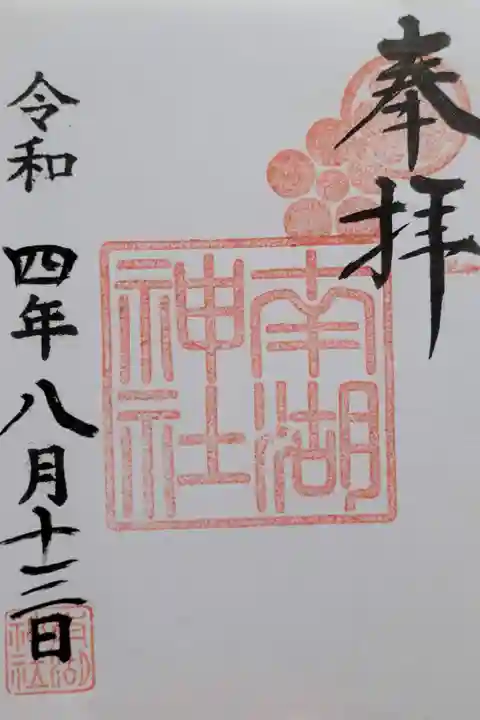 奉拝
南湖
神社
令和 四年八月十三日
南湖
神社